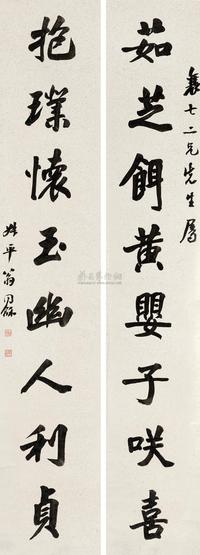 二兄先生屬
茹芝餌黃嬰子咲喜
抱璞懷玉幽人利貞
叔平翁同龢